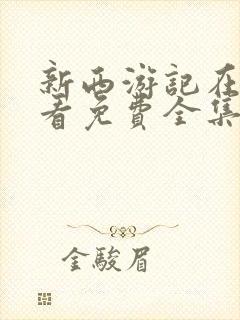 新西游記在
看免費全集
金駿眉